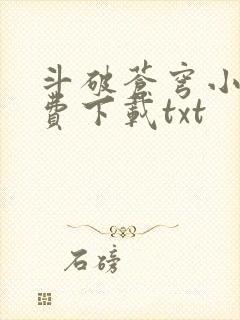 斗破苍穹小
費下載txt
石磅